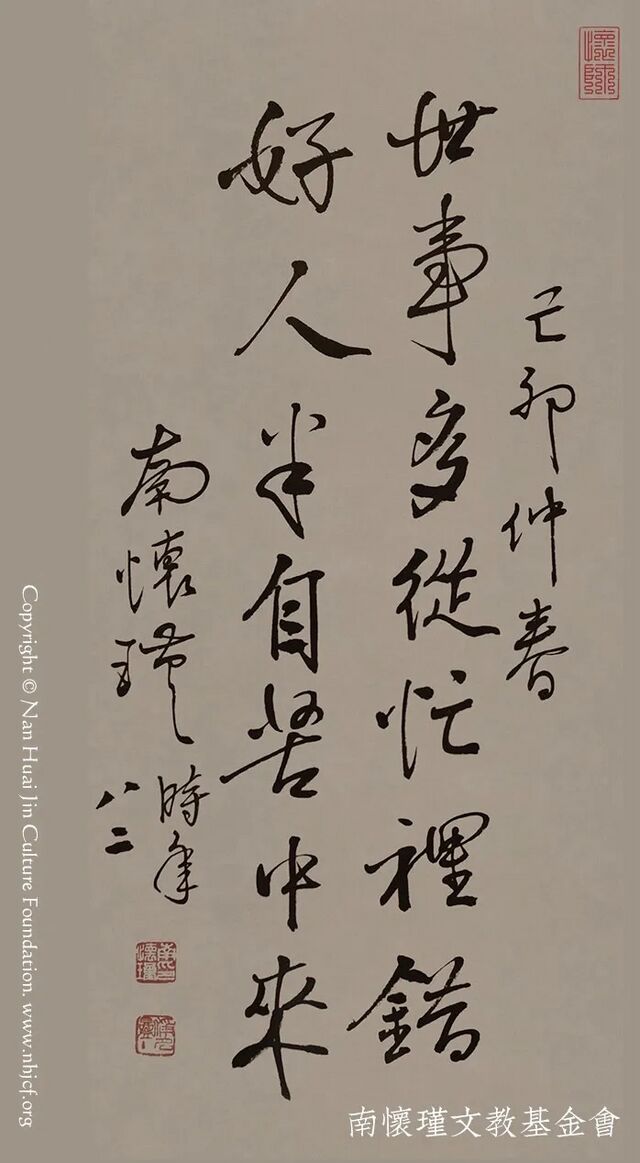 己卯仲春
世事多從忙裡錯
好人半自苦中來
南懷瑾
時年
八二
南懷瑾文教基金會
Copyright © Nan Huai Jin Culture Foundation. www.nhjcf.org
懷師